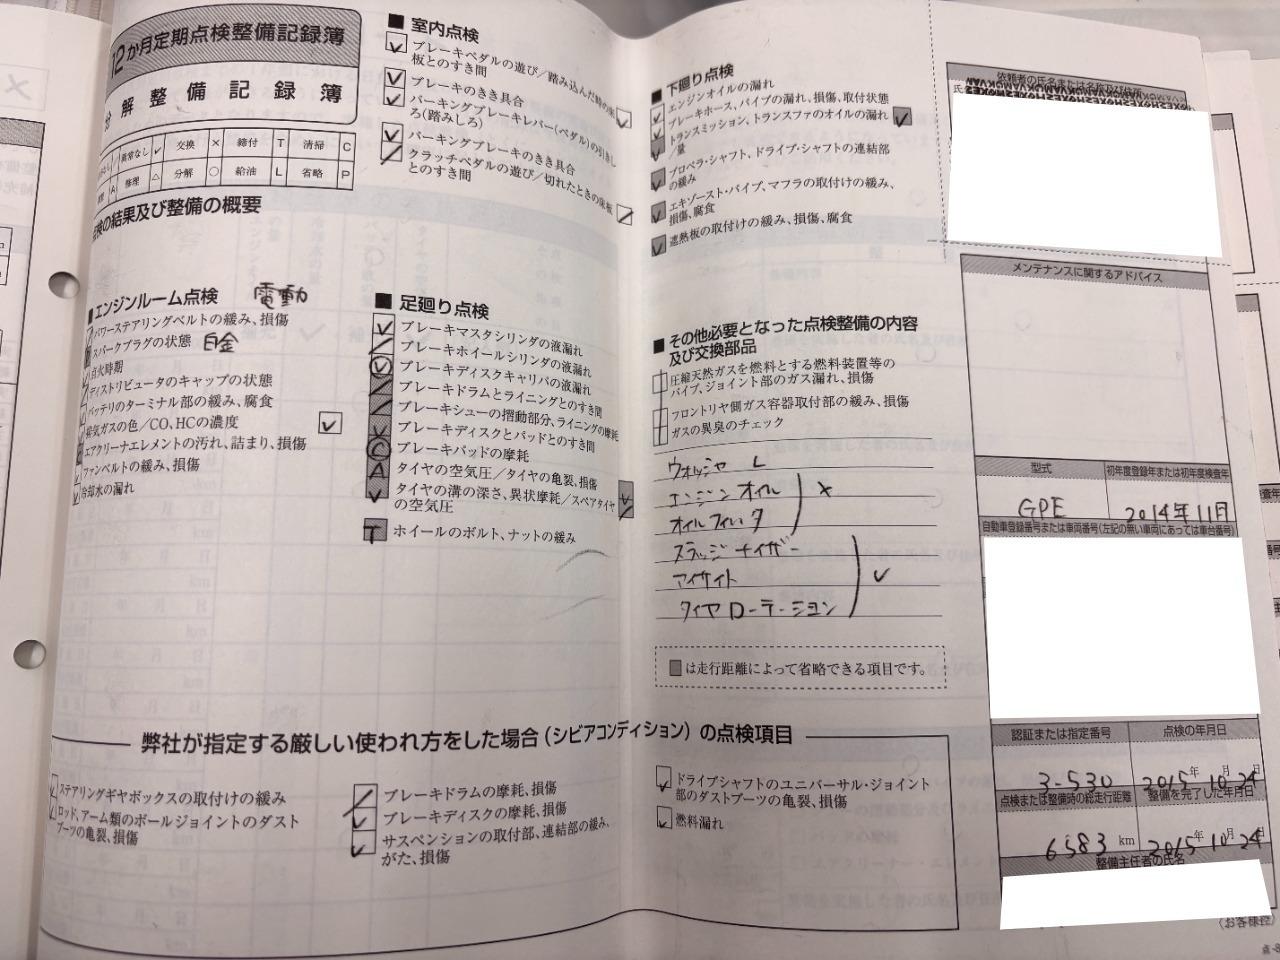 12か月定期点検整備記録簿
分解整備記録簿
異常なし ✓ 交換 × 締付 T 清掃 C
A 修理 △ 分解 ○ 給油 L 省略 P
点検の結果及び整備の概要
■ エンジンルーム点検 電動
パワーステアリングベルトの緩み、損傷
スパークプラグの状態 白金
点火時期
ディストリビュータのキャップの状態
バッテリのターミナル部の緩み、腐食
排気ガスの色/CO、HCの濃度
エアクリーナエレメントの汚れ、詰まり、損傷
ファンベルトの緩み、損傷
冷却水の漏れ
■ 室内点検
ブレーキペダルの遊び/踏み込んだ時の床
板とのすき間
ブレーキのきき具合
パーキングブレーキレバー(ペダル)の引きし
ろ(踏みしろ)
パーキングブレーキのきき具合
クラッチペダルの遊び/切れたときの床板
とのすき間
■ 足廻り点検
ブレーキマスタシリンダの液漏れ
ブレーキホイールシリンダの液漏れ
ブレーキディスクキャリパの液漏れ
ブレーキドラムとライニングとのすき間
ブレーキシューの摺動部分、ライニングの摩耗
ブレーキディスクとパッドとのすき間
ブレーキパッドの摩耗
A タイヤの空気圧/タイヤの亀裂、損傷
タイヤの溝の深さ、異状摩耗/スペアタイヤ
の空気圧
T ホイールのボルト、ナットの緩み
■ 下廻り点検
エンジンオイルの漏れ
ブレーキホース、パイプの漏れ、損傷、取付状態
トランスミッション、トランスファのオイルの漏れ
/量
プロペラ・シャフト、ドライブ・シャフトの連結部
の緩み
エキゾースト・パイプ、マフラの取付けの緩み、
損傷、腐食
遮熱板の取付けの緩み、損傷、腐食
■ その他必要となった点検整備の内容
及び交換部品
圧縮天然ガスを燃料とする燃料装置等の
パイプ、ジョイント部のガス漏れ、損傷
フロントリヤ側ガス容器取付部の緩み、損傷
ガスの異臭のチェック
ウォッシャ L
エンジンオイル ×
オイルフィルタ
スラッジナイザー
アイサイト ✓
タイヤローテーション
は走行距離によって省略できる項目です。
依頼者の氏名または名称及び住所
メンテナンスに関するアドバイス
型式 初年度登録年または初年度検査年
GPE 2014年11月
自動車登録番号または車両番号(左記の無い車両にあっては車台番号)
認証または指定番号 点検の年月日
3-530 2015年10月24日
点検または整備時の総走行距離 整備を完了した年月日
6583 km 2015年10月24日
整備主任者の氏名
(お客様控)
弊社が指定する厳しい使われ方をした場合(シビアコンディション)の点検項目
ステアリングギヤボックスの取付けの緩み
ロッド、アーム類のボールジョイントのダスト
ブーツの亀裂、損傷
ブレーキドラムの摩耗、損傷
ブレーキディスクの摩耗、損傷
サスペンションの取付部、連結部の緩み、
がた、損傷
ドライブシャフトのユニバーサル・ジョイント
部のダストブーツの亀裂、損傷
燃料漏れ